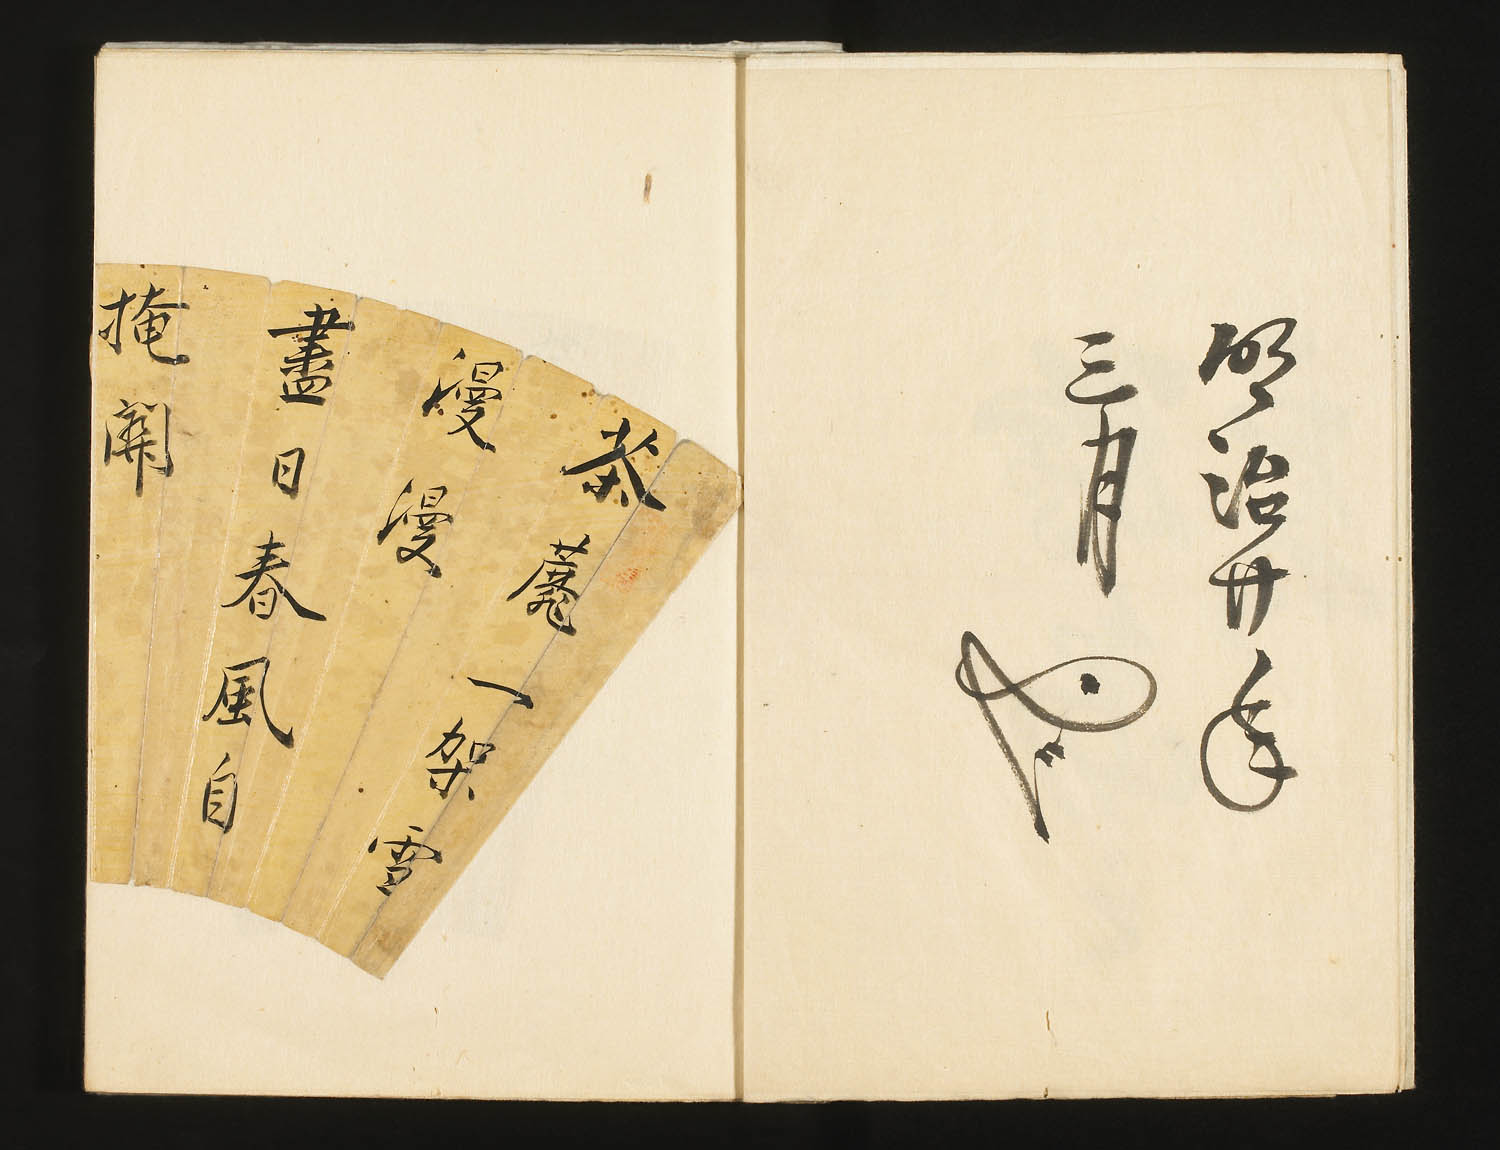 明治廿年
三月
荼蘼一架雪
漫漫
盡日春風自
掩關